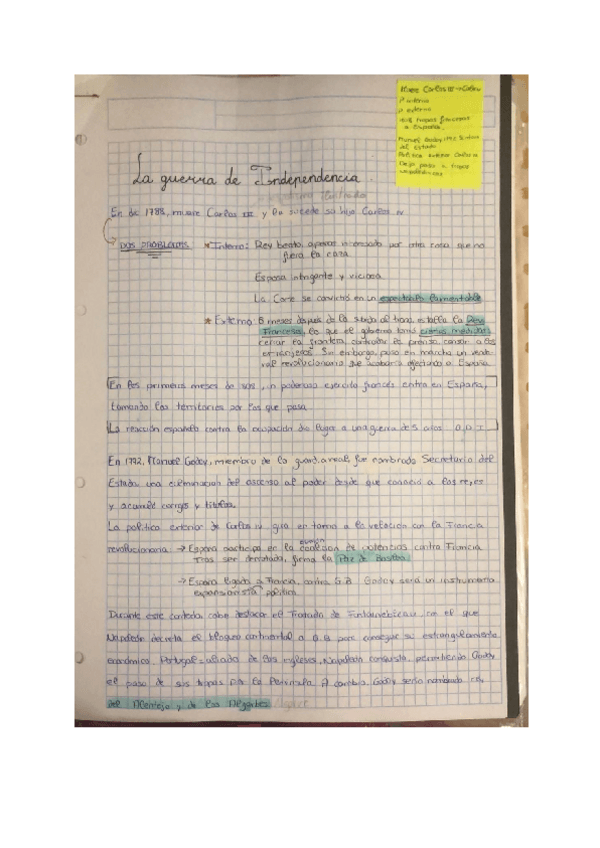 Muere Carlos III → Carlos IV
P interno
P externo
tropas francesas
a España
Manuel Godoy
del Estado
Política exterior Carlos IV
La guerra de Independencia.
En dic 1788, muere Carlos III y le sucede su hijo Carlos IV
DOS PROBLEMAS
* Interno: Rey beato, apenas interesado por otra cosa que no
fuera la caza
Esposa intrigante y viciosa
La Corte se convirtió en un espectáculo lamentable
* Externo: 8 meses después de la subida al trono, estalla la Rev
Francesa, lo que el gobierno tomó ciertas medidas
cerrar la frontera, controlar la prensa, censar a los
extranjeros. Sin embargo, puso en marcha un vendaval
revolucionario que acabaría afectando a España
En los primeros meses de 1808, un poderoso ejército francés entra en España,
tomando los territorios por los que pasa.
La reacción española contra la ocupación dio lugar a una guerra de 5 años.
En 1792, Manuel Godoy, miembro de la guardia real, fue nombrado Secretario del
Estado, una culminación del ascenso al poder desde que conoció a los reyes
y acumuló cargos y títulos.
La política exterior de Carlos IV gira en torno a la relación con la Francia
revolucionaria → España participa en la coalición de potencias contra Francia
Tras ser derrotada, firma la Paz de Basilea.
→ España ligada a Francia, contra G.B. Godoy será un instrumento
expansionista política.
Durante este contexto, cabe destacar el Tratado de Fontainebleau, con el que
Napoleón decreta el bloqueo continental a G.B para conseguir su estrangulamiento
económico. Portugal = aliada de los ingleses, Napoleón conquista, permitiendo Godoy
el paso de sus tropas por la Península. A cambio, Godoy sería nombrado rey
del Alentejo y de los Algarbes